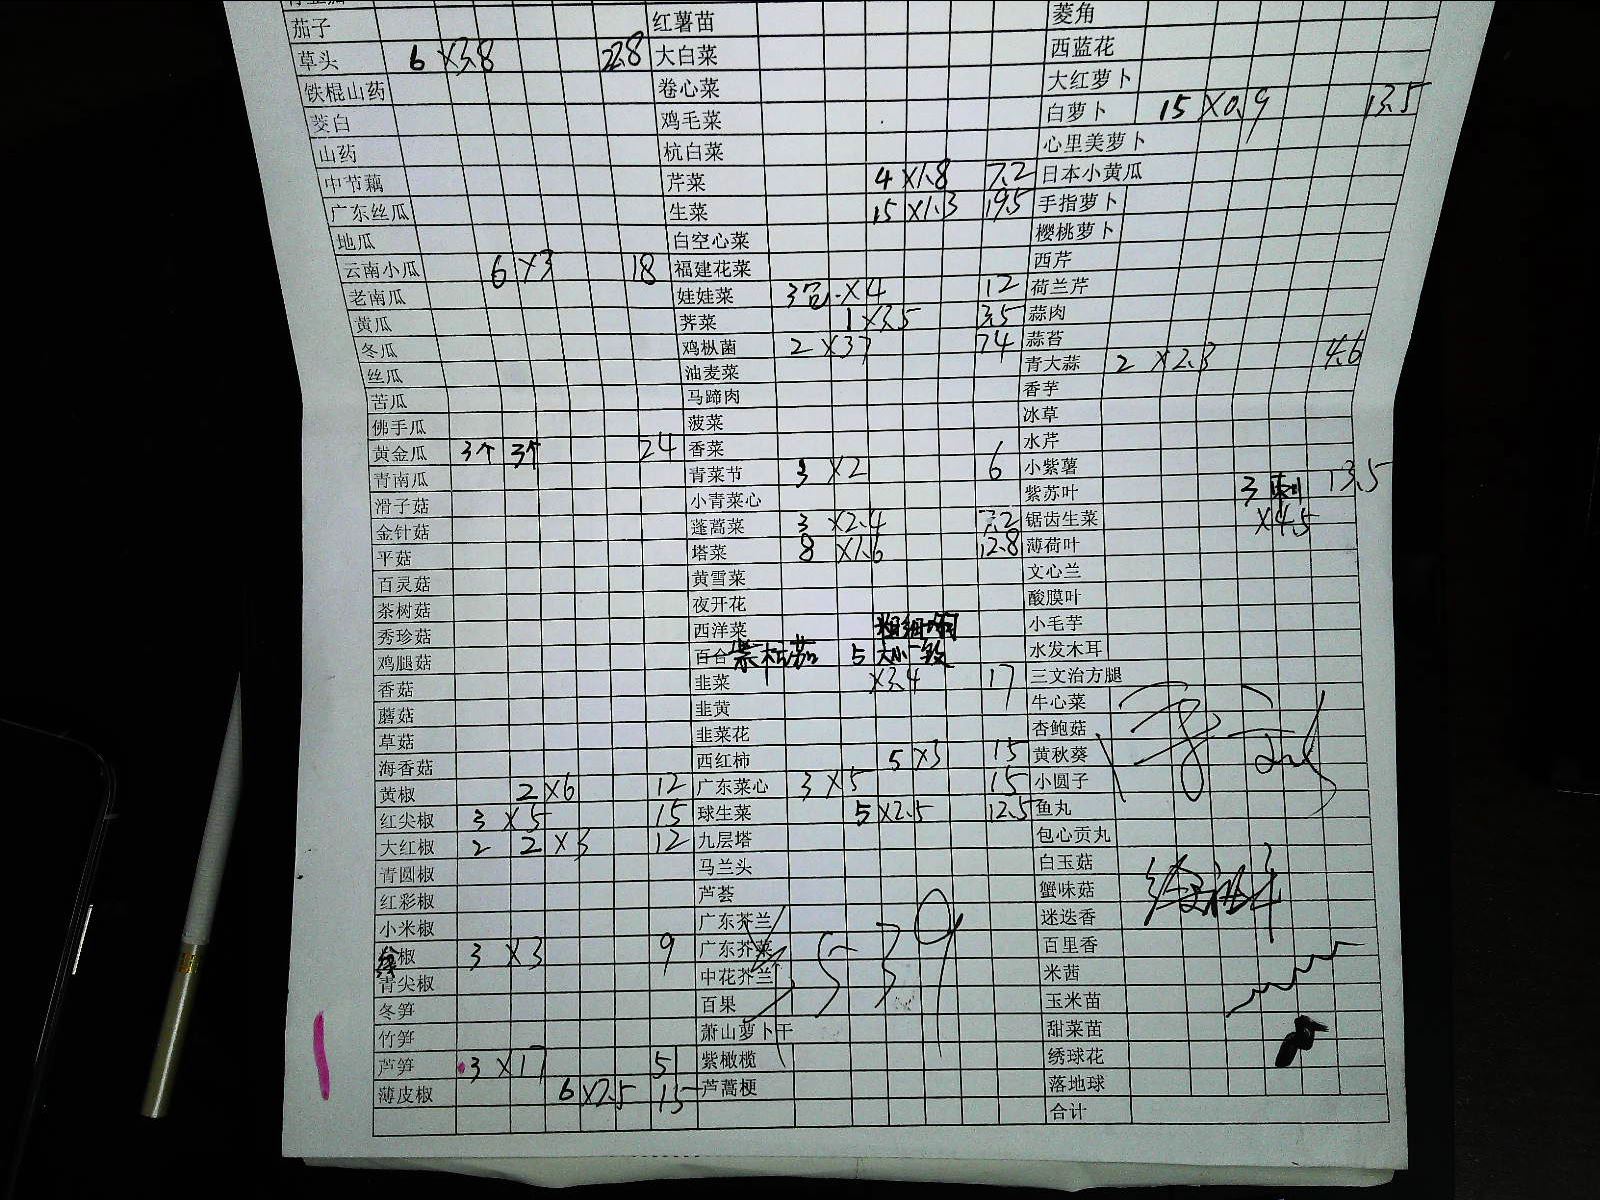 茄子 红薯苗 菱角
草头 6 ×3.8 22.8 大白菜 西蓝花
铁棍山药 卷心菜 大红萝卜
茭白 鸡毛菜 白萝卜 15 ×0.9 13.5
山药 杭白菜 心里美萝卜
中节藕 芹菜 4 ×1.8 7.2 日本小黄瓜
广东丝瓜 生菜 15 ×1.3 19.5 手指萝卜
地瓜 白空心菜 樱桃萝卜
云南小瓜 6 ×3 18 福建花菜 西芹
老南瓜 娃娃菜 3包 ×4 12 荷兰芹
黄瓜 荠菜 1 ×3.5 3.5 蒜肉
冬瓜 鸡枞菌 2 ×37 74 蒜苔
丝瓜 油麦菜 青大蒜 2 ×2.3 4.6
苦瓜 马蹄肉 香芋
佛手瓜 菠菜 冰草
黄金瓜 3个 3个 24 香菜 水芹
青南瓜 青菜节 3 ×2 6 小紫薯
滑子菇 小青菜心 紫苏叶 3 13.5
金针菇 蓬蒿菜 3 ×2.4 7.2 锯齿生菜 ×4.5
平菇 塔菜 8 ×1.6 12.8 薄荷叶
百灵菇 黄雪菜 文心兰
茶树菇 夜开花 酸膜叶
秀珍菇 西洋菜 粗细均 小毛芋
鸡腿菇 百合 5 大小一致 水发木耳
香菇 韭菜 ×3.4 17 三文治方腿
蘑菇 韭黄 牛心菜
草菇 韭菜花 杏鲍菇
海香菇 西红柿 5 ×3 15 黄秋葵
黄椒 2 ×6 12 广东菜心 3 ×5 15 小圆子
红尖椒 3 ×5 15 球生菜 5 ×2.5 12.5 鱼丸
大红椒 2 2 ×3 12 九层塔 包心贡丸
青圆椒 马兰头 白玉菇
红彩椒 芦荟 蟹味菇
小米椒 广东芥兰 迷迭香
椒 3 ×3 9 广东芥菜 539 百里香
青尖椒 中花芥兰 米茜
冬笋 百果 玉米苗
竹笋 萧山萝卜干 甜菜苗
芦笋 3 ×17 51 紫橄榄 绣球花
薄皮椒 6 ×2.5 15 芦蒿梗 落地球
合计